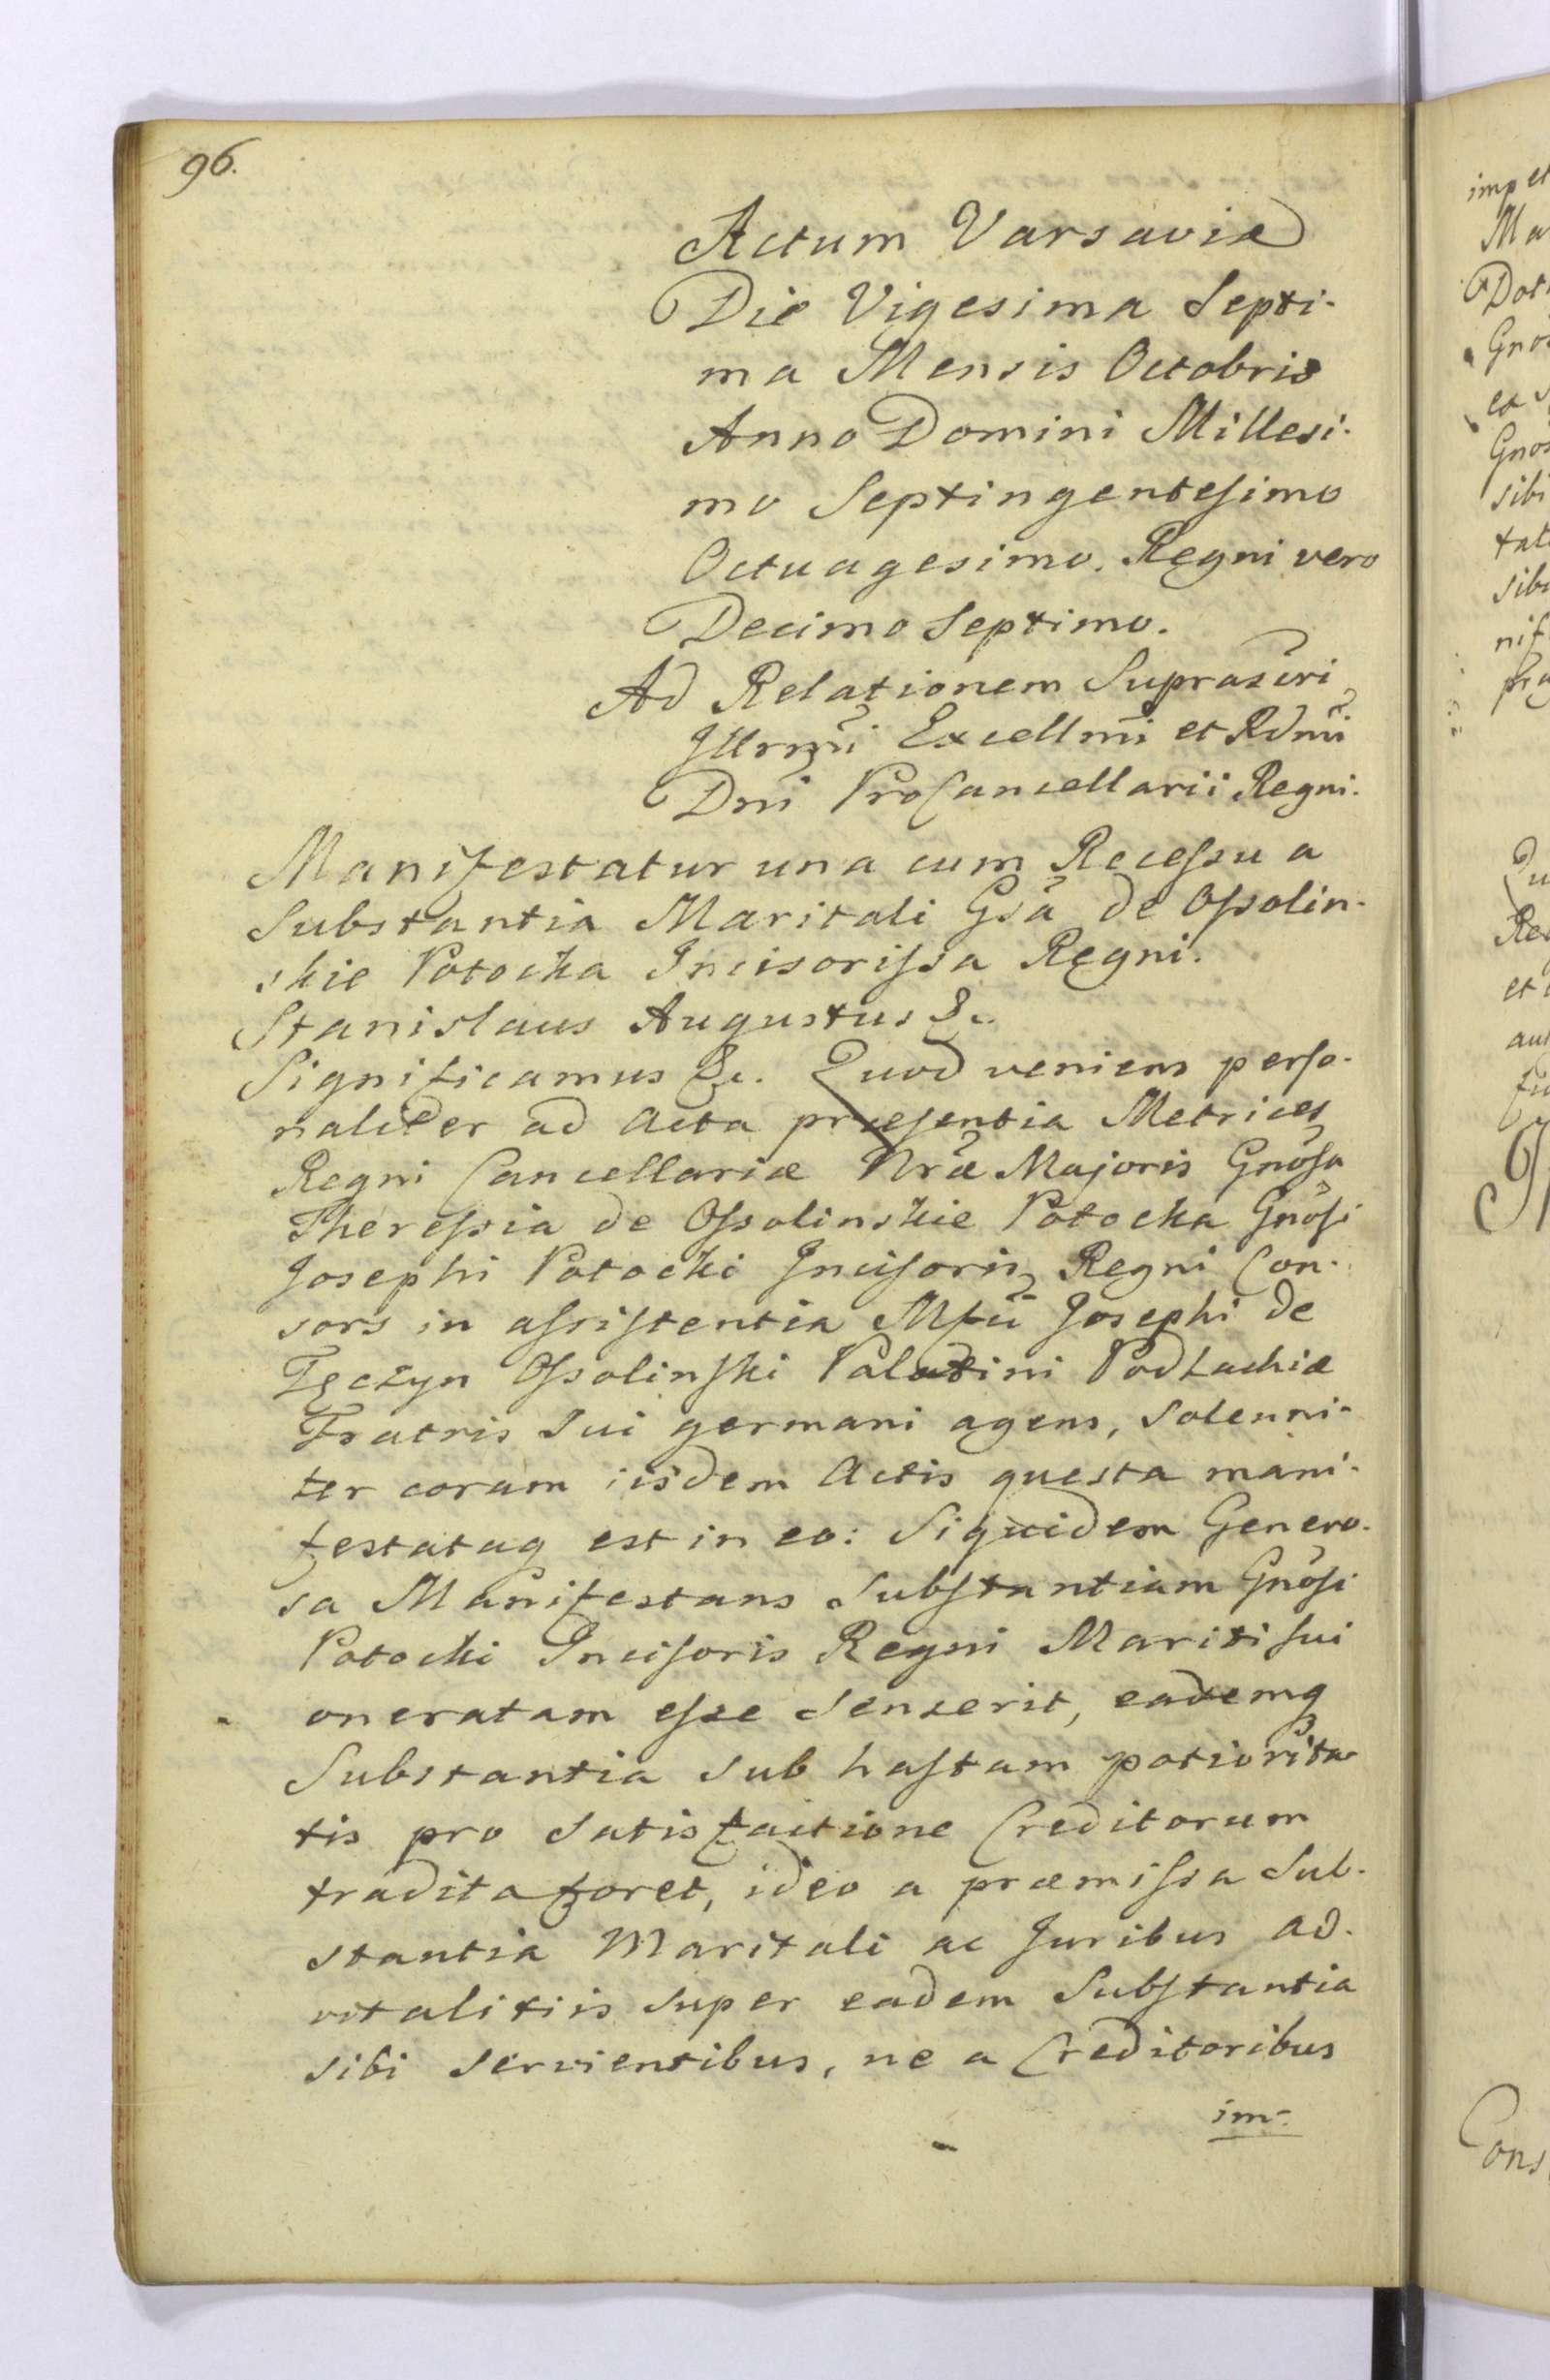 96.
Actum Varsaviæ
Die Vigesima Septi-
ma Mensis Octobris
Anno Domini Millesi-
mo Septingentesimo
Octuagesimo. Regni vero
Decimo Septimo.
Ad Relationem Suprascri
Illrmi Excellmi et Rdmi
Dni ProCancellarii Regni.
Manifestatur una cum Recessu a
Substantia Maritali Gsa de Ossolin-
skie Potocka Incisorissa Regni.
Stanislaus Augustus &c.
Significamus &c. Quod veniens perso-
naliter ad Acta præsentia Metrices
Regni Cancellariæ Nræ Majoris Gnosa
Theressia de Ossolinskie Potocka Gnosi
Josephi Potocki Incisoris Regni Con-
sors in assistentia Mfci Josephi de
Tęczyn Ossolinski Palatini Podlachiæ
Fratris Sui germani agens, Solenni-
ter coram iisdem Actis questa mani-
festataq est in eo: Siquidem Genero-
sa Manifestans Substantiam Gnosi
Potocki Incisoris Regni Mariti sui
oneratam esse Senserit, eademq
Substantia Sub hastam potiorita-
tis pro Satisfactione Creditorum
tradita foret, ideo a præmissa Sub-
stantia Maritali ac Juribus ad-
vitalitiis Super eadem Substantia
sibi Servientibus, ne a Creditoribus
im-
imp et
Ma
Dot
Gnos
et
Gnos
sibi
tat
sib
nif
Qu
Re
et
aut
Cons